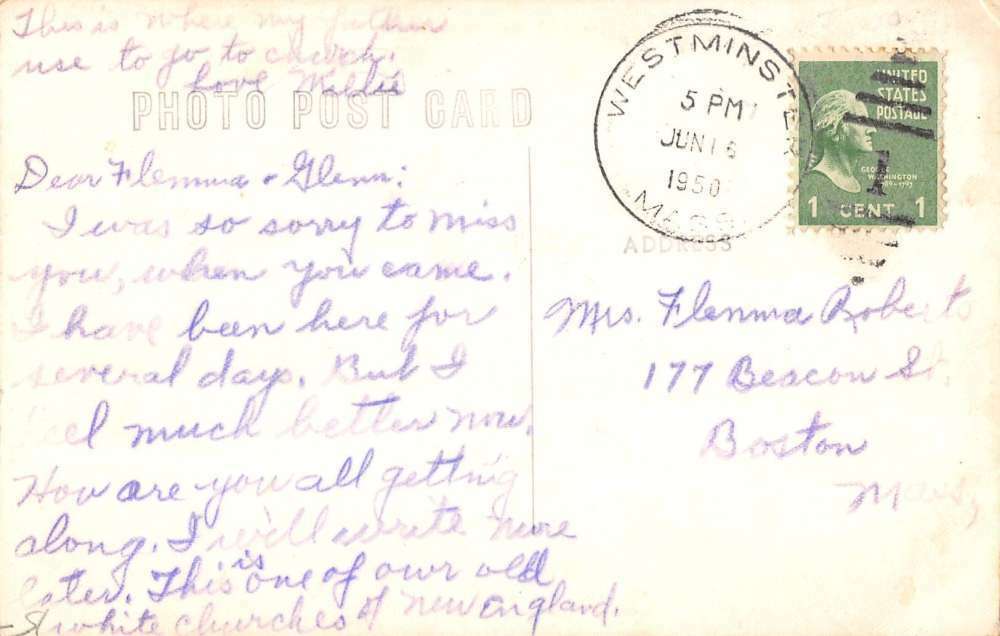 This is where my father
use to go to church.
Love Millie
PHOTO POST CARD
WESTMINSTER
5 PM
JUN 16
1950
MASS.
UNITED
STATES
POSTAGE
GEORGE
WASHINGTON
1789-1797
1 CENT 1
Dear Flemma & Glenn:
I was so sorry to miss
you, when you came.
I have been here for
several days. But I
feel much better now.
How are you all getting
along. I will write more
later. This is one of our old
white churches of New England.
ADDRESS
Mrs. Flemma Roberts
177 Beacon St.
Boston
Mass,